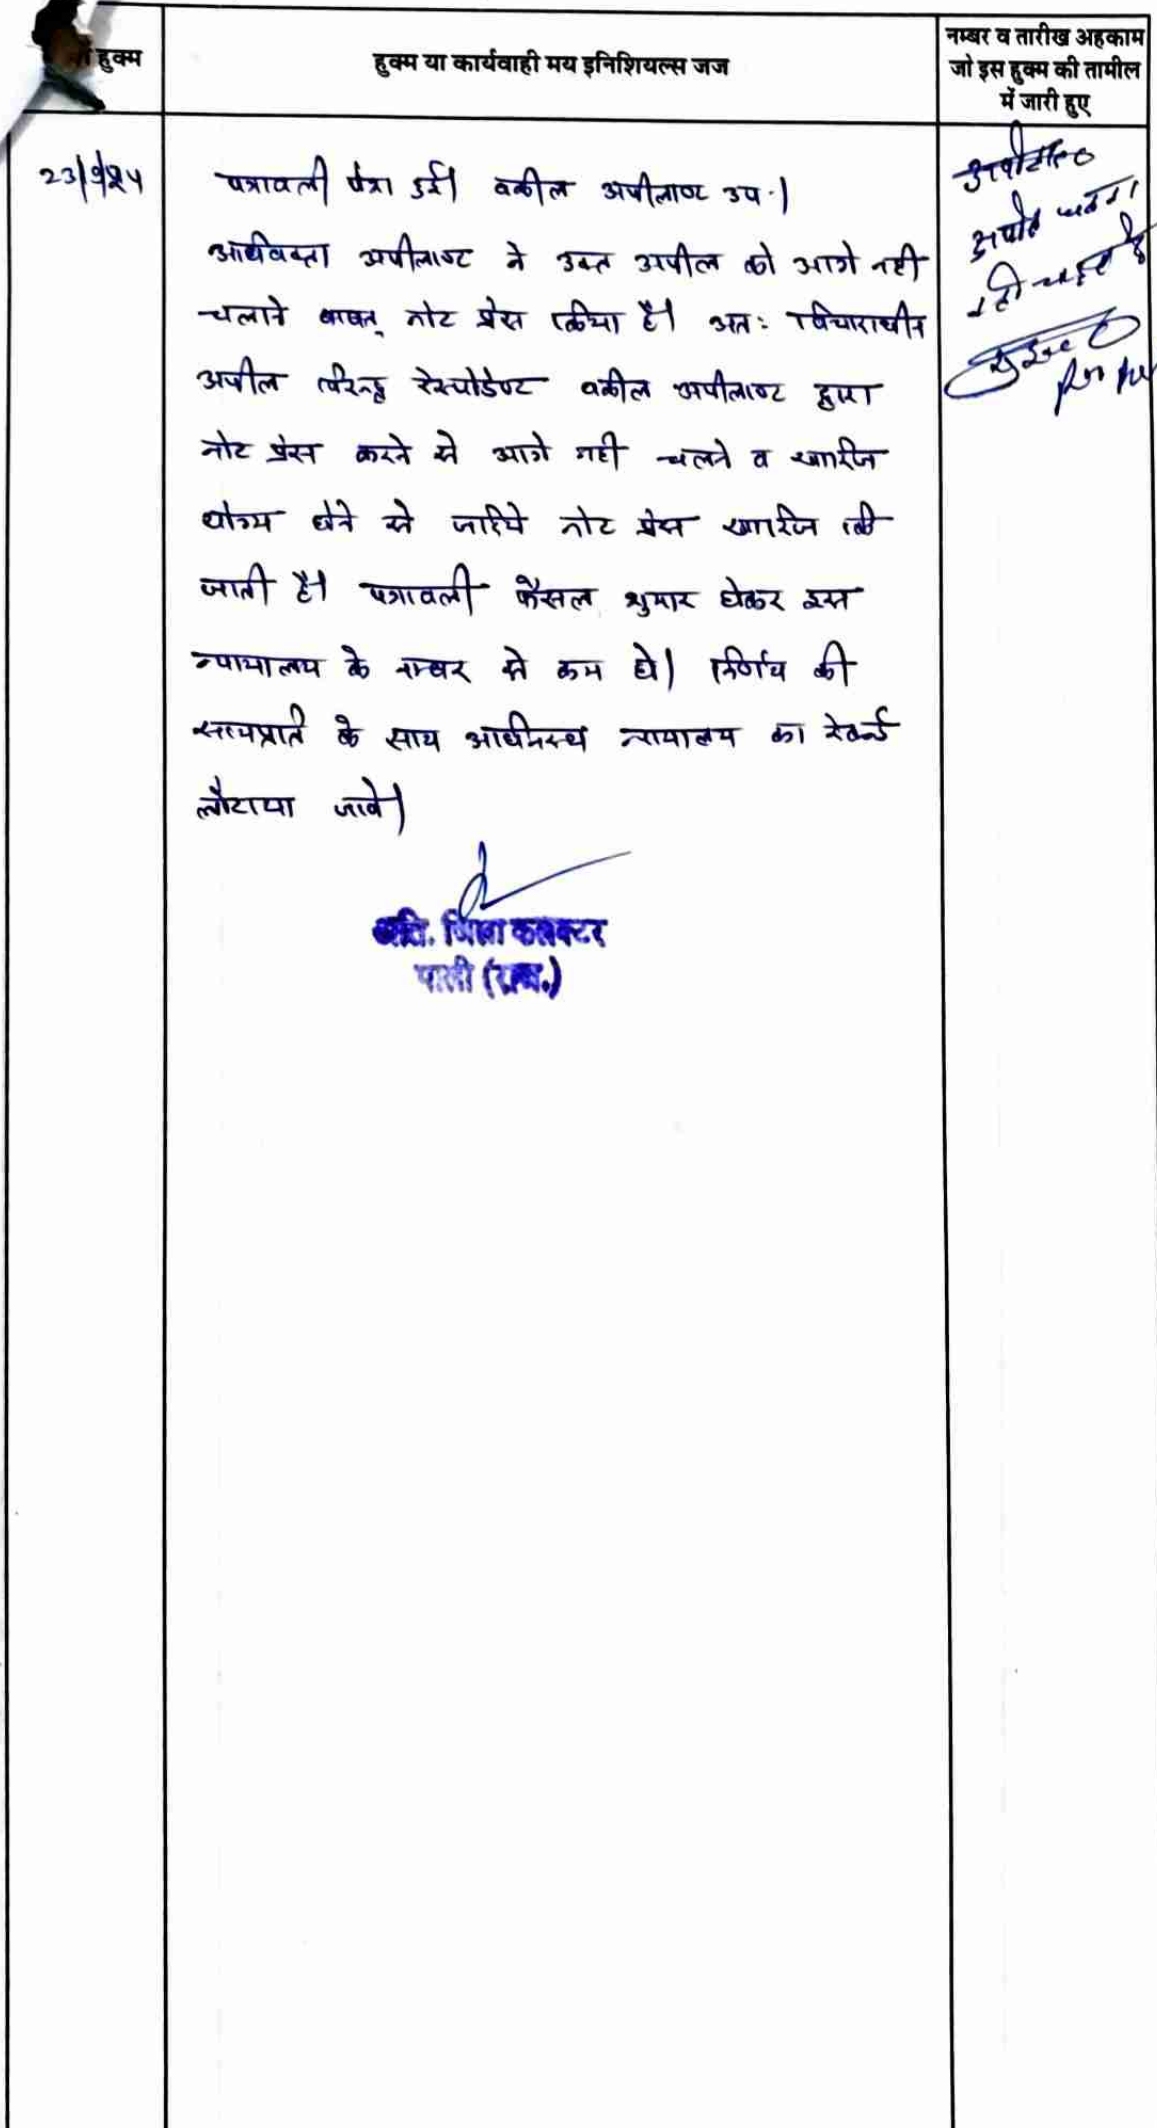 हुक्म
हुक्म या कार्यवाही मय इनिशियल्स जज
नम्बर व तारीख अहकाम
जो इस हुक्म की तामील
में जारी हुए
23/9/24
पत्रावली पेश हुई। वकील अपीलाण्ट उप.।
अधिवक्ता अपीलाण्ट ने उक्त अपील को आगे नही
चलाने बाबत् नोट प्रेस किया है। अतः विचाराधीन
अपील विरुद्ध रेस्पोडेण्ट वकील अपीलाण्ट द्वारा
नोट प्रेस करने से आगे नही चलने व खारीज
योग्य होने से जरिये नोट प्रेस खारीज की
जाती है। पत्रावली फैसल शुमार होकर इस
न्यायालय के नम्बर से कम हो। निर्णय की
सत्यप्रति के साथ अधीनस्थ न्यायालय का रेकर्ड
लौटाया जावे।
अति. जिला कलक्टर
पाली (राज.)
अपीलाण्ट
अपील चलाना
नही चाहते है